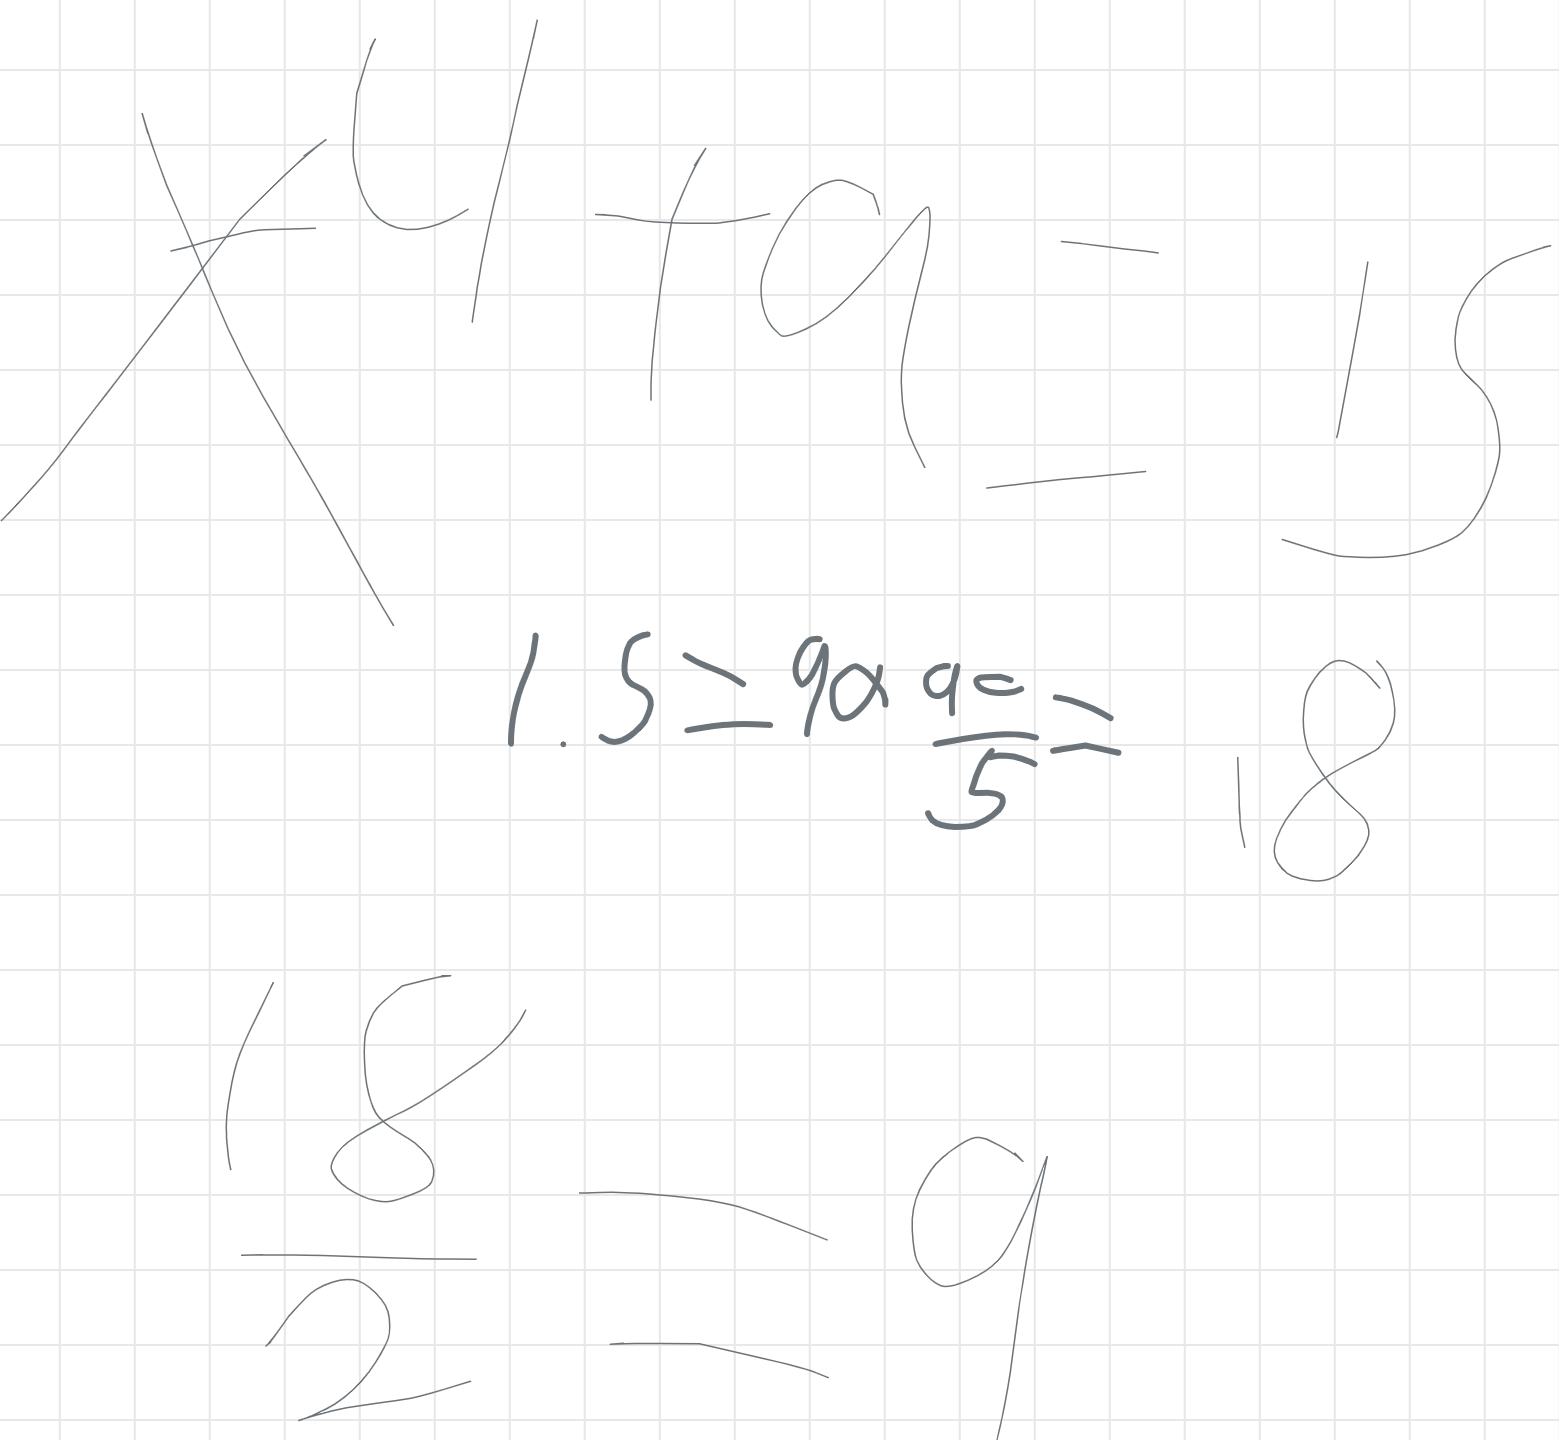 x 4 + 9 = 15
1.5 = 90 90/5 = 18
18/2 = 9